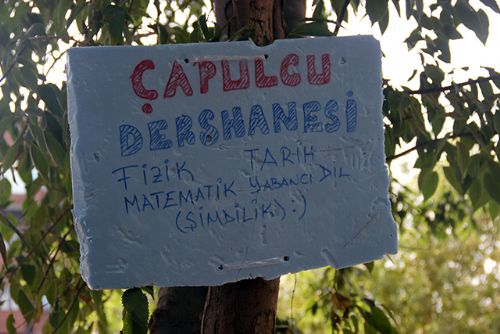 ÇAPULCU
DERSHANESİ
FİZİK TARİH
MATEMATİK YABANCI DİL
(ŞİMDİLİK) :)